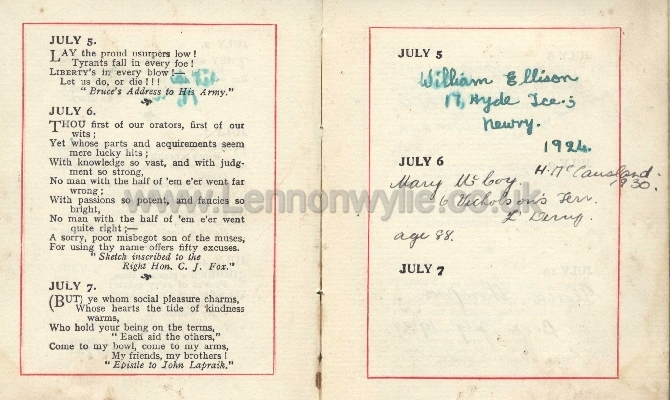 JULY 5.
LAY the proud usurpers low!
Tyrants fall in every foe!
LIBERTY'S in every blow!—
Let us do, or die!!!
"Bruce's Address to His Army."
JULY 6.
THOU first of our orators, first of our
wits;
Yet whose parts and acquirements seem
mere lucky hits;
With knowledge so vast, and with judg-
ment so strong,
No man with the half of 'em e'er went far
wrong;
With passions so potent, and fancies so
bright,
No man with the half of 'em e'er went
quite right;—
A sorry, poor misbegot son of the muses,
For using thy name offers fifty excuses.
"Sketch inscribed to the
Right Hon. C. J. Fox."
JULY 7.
(BUT) ye whom social pleasure charms,
Whose hearts the tide of kindness
warms,
Who hold your being on the terms,
"Each aid the others,"
Come to my bowl, come to my arms,
My friends, my brothers!
"Epistle to John Lapraik."
JULY 5
William Ellison
17, Hyde Tce.;
Newry.
1924.
JULY 6
H. McCausland.
1930.
Mary McCoy
6 Nicholson's Terr.
L Derry.
age 88.
JULY 7
www.Lennonwylie.co.uk